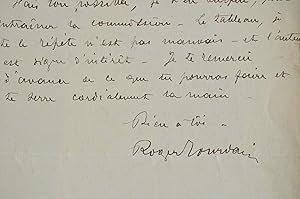 entraîner la commission. Le tableau, je
te le répète n'est pas mauvais - et l'auteur
est digne d'intérêt - Je te remercie
d'avance de ce que tu pourras faire et
te serre cordialement la main -
Bien à toi -
Roger Jourdain